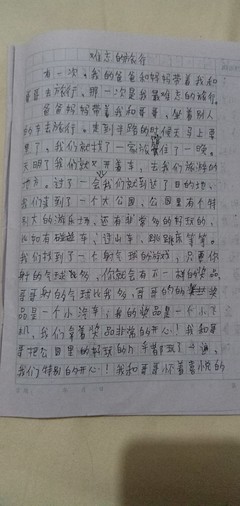 难忘的旅行
有一次,我的爸爸和妈妈带着我和
哥哥去旅行,那一次是我最难忘的旅行。
爸爸妈妈带着我和哥哥,坐着别人
的车去旅行。走到半路的时候天马上要
黑了,我们就找了一家住了一晚。
天明了我们就又开着车,去我们旅游的
地方。过了一会我们就到达了目的地,
我们来到了一个大公园,公园里有个特
别大的游乐场,还有非常多的好玩的,
比如有碰碰车,过山车,跳跳床等等。
我们找到了一个射气球的游戏,只要你
射的气球越多,你就会有不一样的奖品
哥哥射的气球比我多,哥哥的奖
品是一个小汽车,我的奖品是一个小飞
机,我们拿着奖品非常的开心!我和哥
哥把公园里的好玩的几乎都玩了一遍,
我们特别的开心!我和哥哥怀着喜悦的